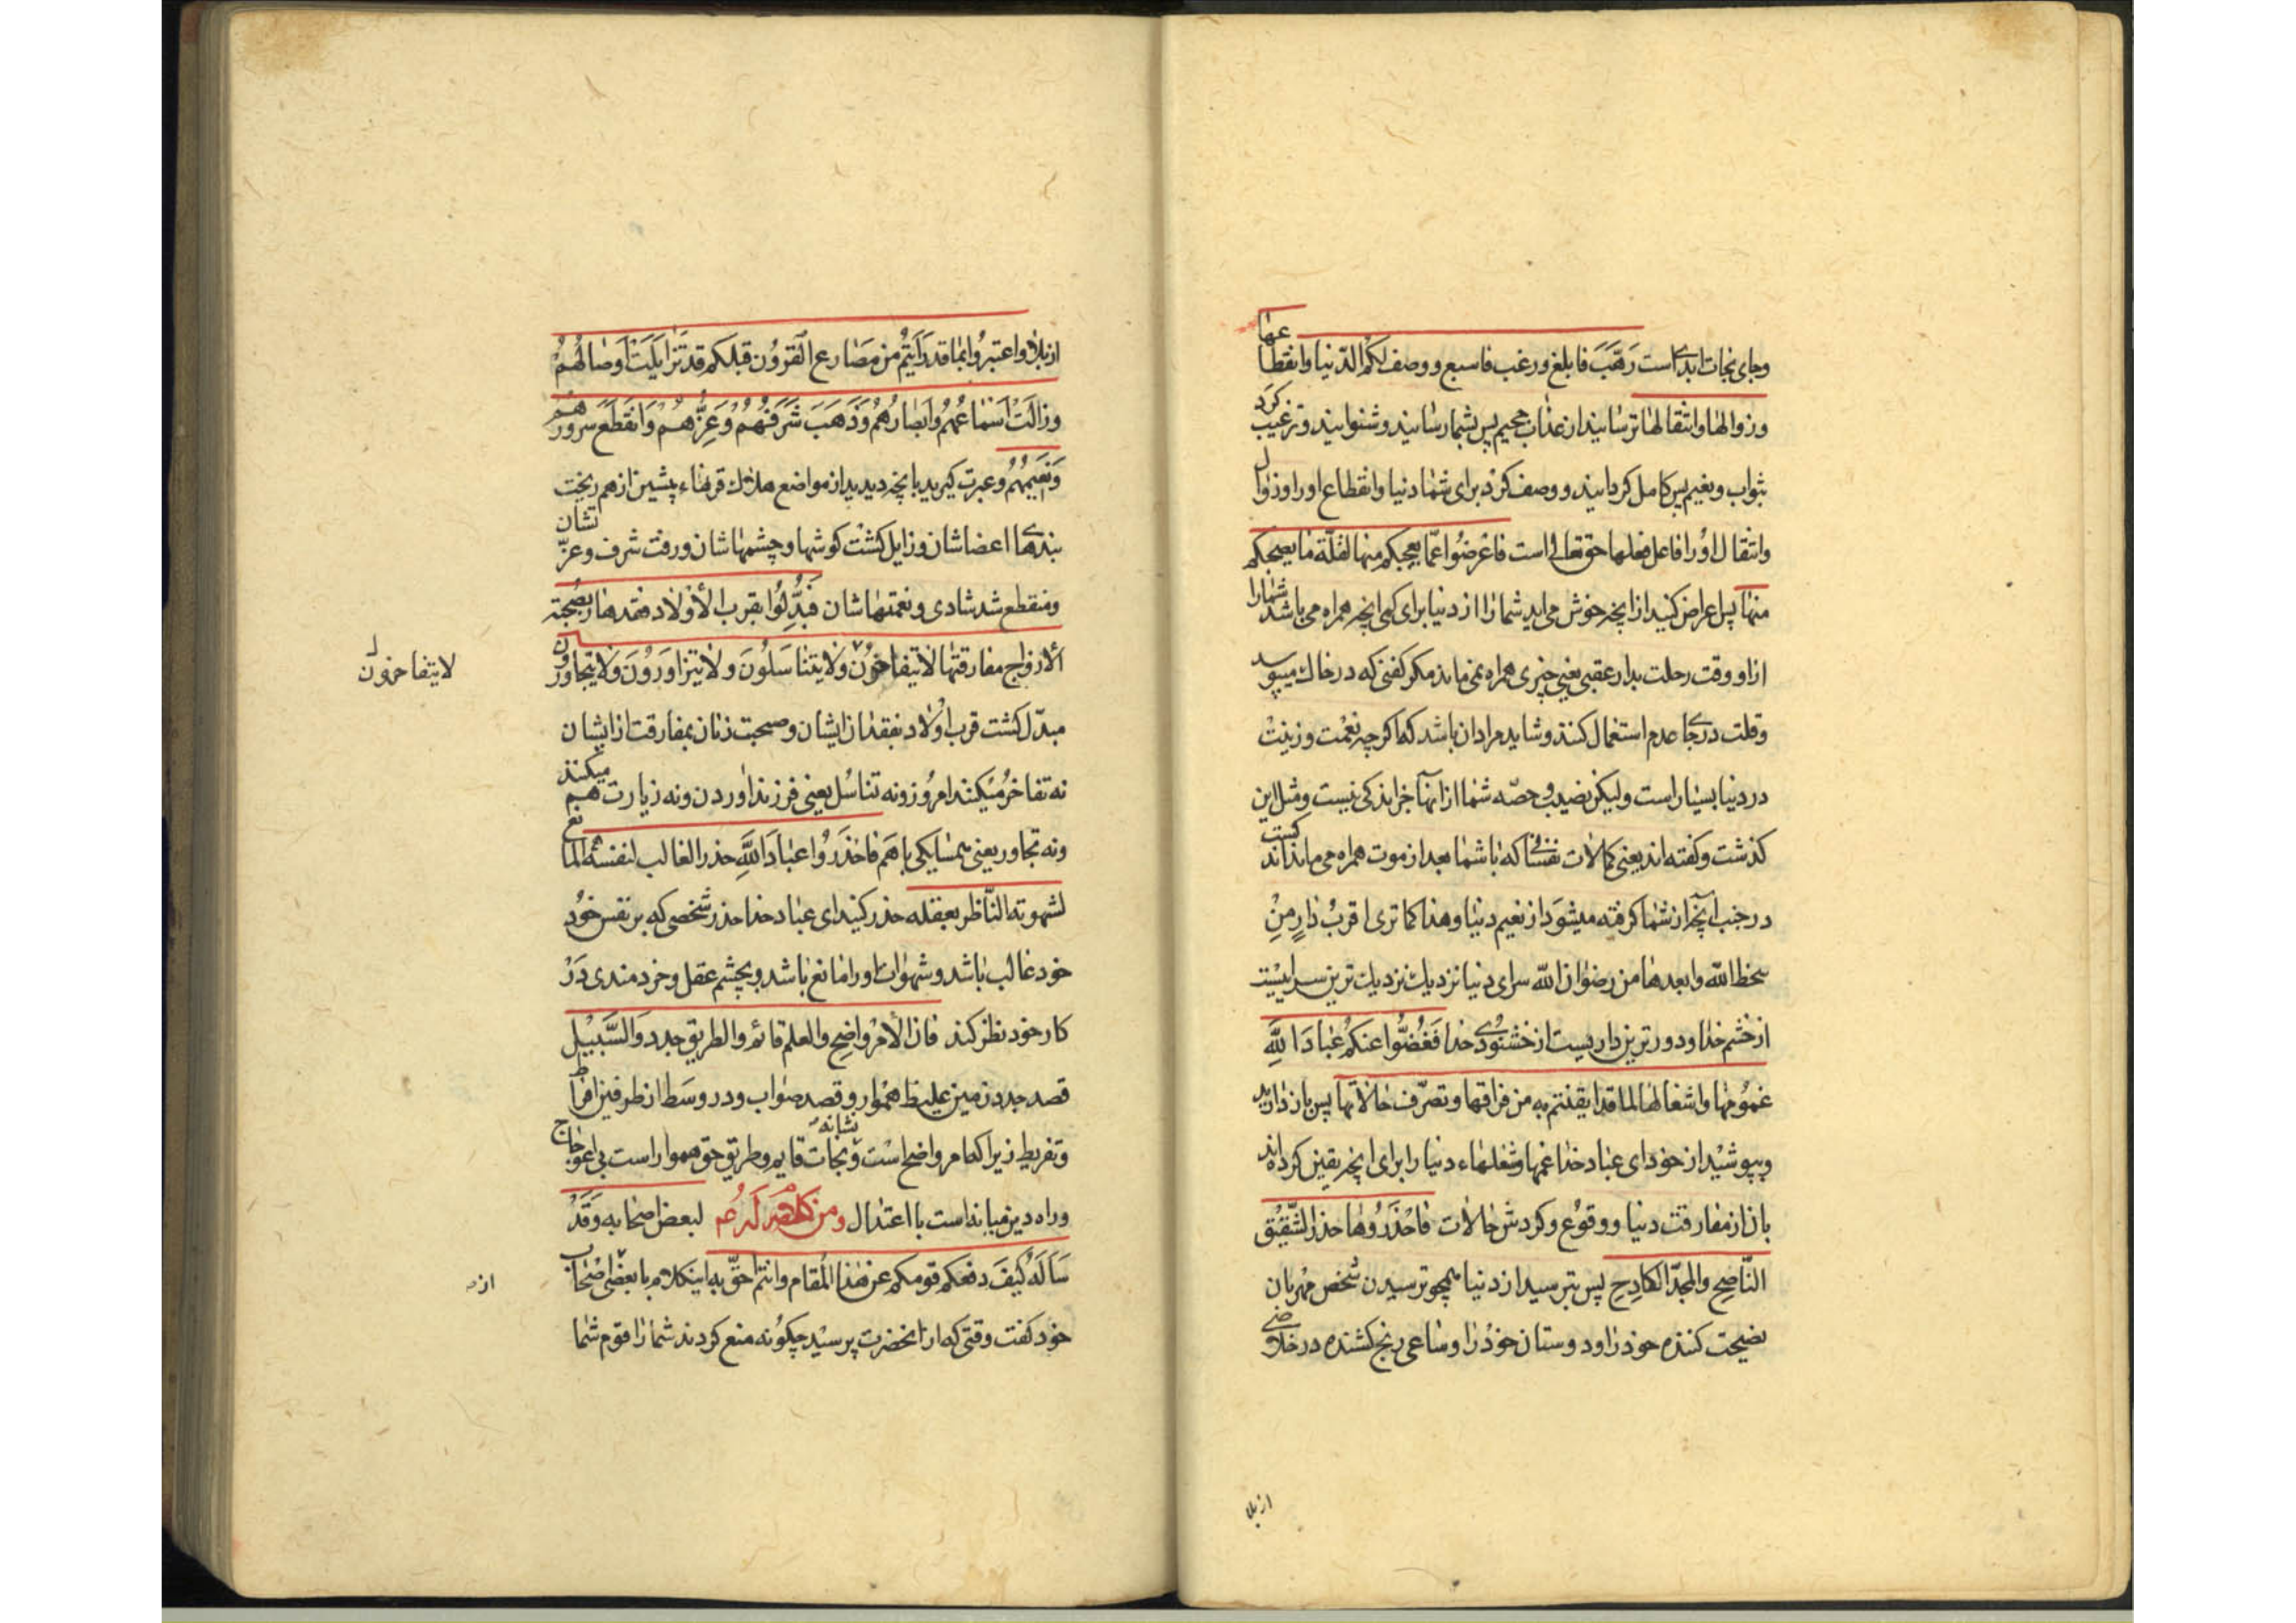 وجای نجات ابدی است رَهَّبَ فابلغ ورغب فاسبغ ووصف لکم الدّنیا وانقطاعها
وزوالها وانتقالها ترسانید از عذاب جحیم پس بشما رسانید و شنوانید و ترغیب کرد
بثواب ونعیم پس کامل کردانید و وصف کرد برای شما دنیا وانقطاع اورا وزوال
وانتقال اورا فاعل فعلها حق تعالی است فاعرضوا عمّا یعجبکم منها لقلّة ما یصحبکم
منها پس اعراض کنید از انچه خوش می اید شما را از دنیا برای کمی انچه همراه می باشد شما را
ازاو وقت رحلت بدار عقبی یعنی چیزی همراه نمی ماند مکر کفنی که در خاک میپوسد
وقلت در جای عدم استعمال کنند وشاید مراد ان باشد که اکرچه نعمت وزینت
در دنیا بسیار است ولیکن نصیب و حصّه شما از انها جز اندکی نیست ومثل این
کذشت و کفته اند یعنی کمالات نفسانی که با شما بعد از موت همراه می ماند اندکست
در جنب انچه از شما کرفته میشود از نعیم دنیا وهذا کما تری اقرب دارٍ مِنْ
سخط الله وابعدها من رضوان الله سرای دنیا نزدیک نزدیک ترین سرائیست
از خشم خدا و دورترین داریست از خشنودی خدا فَغُضُّوا عنکم عبادَ اللهِ
غمومها واشغالها لما قد ایقنتم به من فراقها وتصرّف حالاتها پس باز دارید
وبپوشید از خود ای عباد خدا غمها وشغلهاء دنیا را برای انچه یقین کرده اند
بان از مفارقت دنیا و وقوع و کردش حالات فاحْذَرُوها حذر الشّفیق
النّاصِح والمجدّ الکادِح پس بترسید از دنیا همچو ترسیدن شخص مهربان
نصیحت کننده خود را و دوستان خود را وساعی رنج کشنده در خلاصی
از بلا
از بلا واعتبروا بما قد رَاَیتُم من مَصَارع القُرون قبلکم قد تَزایَلَتْ اَوصالُهُمْ
وزالَتْ اَسْمَاعُهُم وَاَبْصَارُهُم وَذَهَبَ شَرَفُهُمْ وَعِزُّهُمْ وَانْقَطَعَ سرورُهُم
وَنَعِیمُهُمْ وعبرت کیرید بانچه دیدید از مواضع هلاک قرنهاء پیشین از هم ریخت
بندهای اعضاشان وزایل کشت کوشها و چشمهاشان ورفت شرف وعزّتشان
ومنقطع شد شادی و نعمتهاشان فَبُدِّلُوا بقرب الأولاد فقدها وبصُحْبَة
الأزواج مفارقتها لا یتفاخرُونَ ولا یتناسَلُونَ ولا یتزاوَرُونَ ولا یتجاورون
لا یتفاخرون
مبدّل کشت قرب اولاد بفقدان ایشان وصحبت زنان بمفارقت از ایشان
نه تفاخر میکنند امروز ونه تناسُل یعنی فرزند اوردن ونه زیارت هم میکنند
ونه تجاور یعنی همسایکی باهم فاحْذَرُوا عبادَ اللهِ حذر الغالب لنفسه المانع
لشهوته النّاظر بعقله حذر کنید ای عباد خدا حذر شخصی که بر نفس خود
خود غالب باشد وشهوات اورا مانع باشد وبچشم عقل وخردمندی در
کار خود نظر کند فان الأمر واضح والعلم قائم والطریق جدد والسَّبیل
قصد جدد زمین غلیظ هموار وقصد صواب ودر وسط از طرفین افراط
وتفریط زیرا که امر واضح است ونشانه نجات قایم وطریق حق هموار است بی اعوجاج
وراه دین میانه است با اعتدال ومن کلام له ع لبعض اصحابه وَقَدْ
سَاَلَهُ کَیْفَ دفعکم قومکم عن هذا المَقام وانتم احقّ به اینکلام با بعضی اصحاب
از
خود کفت وقتی که از انحضرت پرسید چکونه منع کردند شما را قوم شما